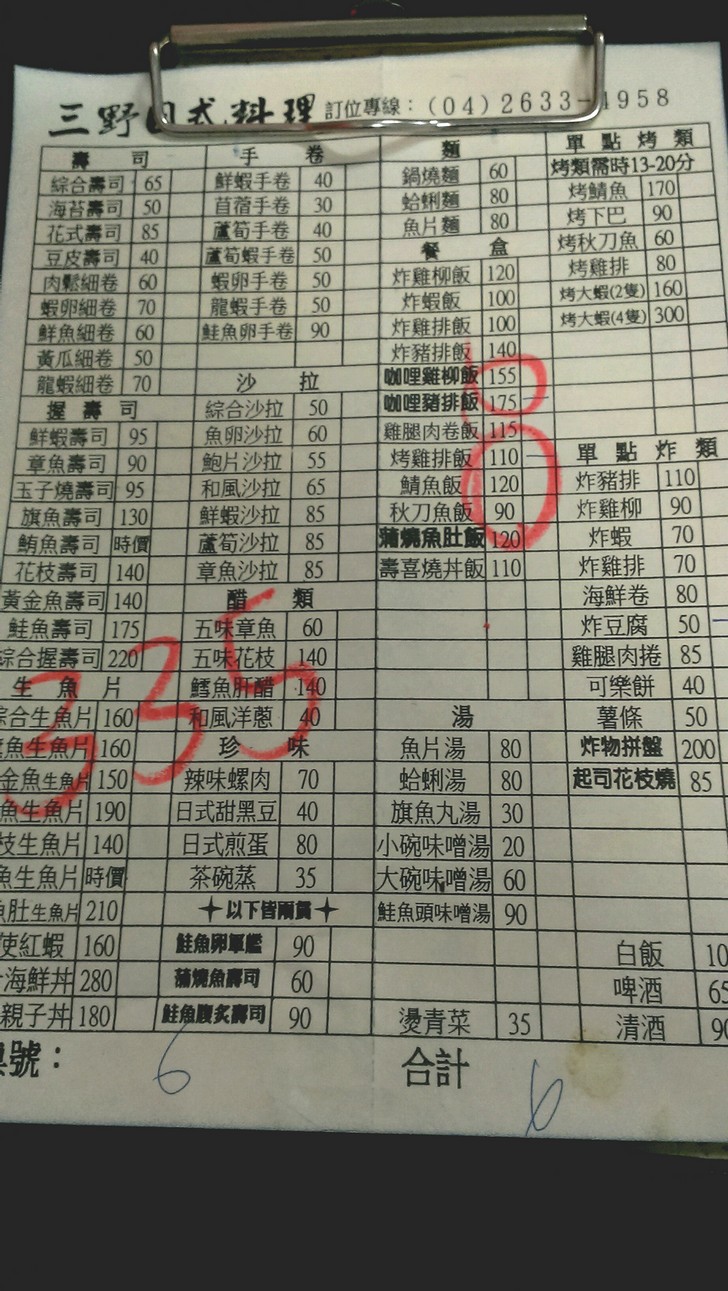 三野日式料理 訂位專線：(04)2633-4958
壽司
綜合壽司 65
海苔壽司 50
花式壽司 85
豆皮壽司 40
肉鬆細卷 60
蝦卵細卷 70
鮮魚細卷 60
黃瓜細卷 50
龍蝦細卷 70
握壽司
鮮蝦壽司 95
章魚壽司 90
玉子燒壽司 95
旗魚壽司 130
鮪魚壽司 時價
花枝壽司 140
黃金魚壽司 140
鮭魚壽司 175
綜合握壽司 220
生魚片
綜合生魚片 160
魚生魚片 160
金魚生魚片 150
魚生魚片 190
枝生魚片 140
魚生魚片 時價
魚肚生魚片 210
使紅蝦 160
海鮮丼 280
親子丼 180
號：
6
手卷
鮮蝦手卷 40
苜蓿手卷 30
蘆筍手卷 40
蘆筍蝦手卷 50
蝦卵手卷 50
龍蝦手卷 50
鮭魚卵手卷 90
沙拉
綜合沙拉 50
魚卵沙拉 60
鮑片沙拉 55
和風沙拉 65
鮮蝦沙拉 85
蘆筍沙拉 85
章魚沙拉 85
醋類
五味章魚 60
五味花枝 140
鱈魚肝醋 140
和風洋蔥 40
珍味
辣味螺肉 70
日式甜黑豆 40
日式煎蛋 80
茶碗蒸 35
以下皆兩貫
鮭魚卵軍艦 90
蒲燒魚壽司 60
鮭魚腹炙壽司 90
335
麵
鍋燒麵 60
蛤蜊麵 80
魚片麵 80
餐盒
炸雞柳飯 120
炸蝦飯 100
炸雞排飯 100
炸豬排飯 140
咖哩雞柳飯 155
咖哩豬排飯 175
雞腿肉卷飯 115
烤雞排飯 110
鯖魚飯 120
秋刀魚飯 90
蒲燒魚肚飯 120
壽喜燒丼飯 110
湯
魚片湯 80
蛤蜊湯 80
旗魚丸湯 30
小碗味噌湯 20
大碗味噌湯 60
鮭魚頭味噌湯 90
燙青菜 35
合計
單點烤類
烤類需時13-20分
烤鯖魚 170
烤下巴 90
烤秋刀魚 60
烤雞排 80
烤大蝦(2隻) 160
烤大蝦(4隻) 300
單點炸類
炸豬排 110
炸雞柳 90
炸蝦 70
炸雞排 70
海鮮卷 80
炸豆腐 50
雞腿肉捲 85
可樂餅 40
薯條 50
炸物拼盤 200
起司花枝燒 85
白飯 10
啤酒 65
清酒 90